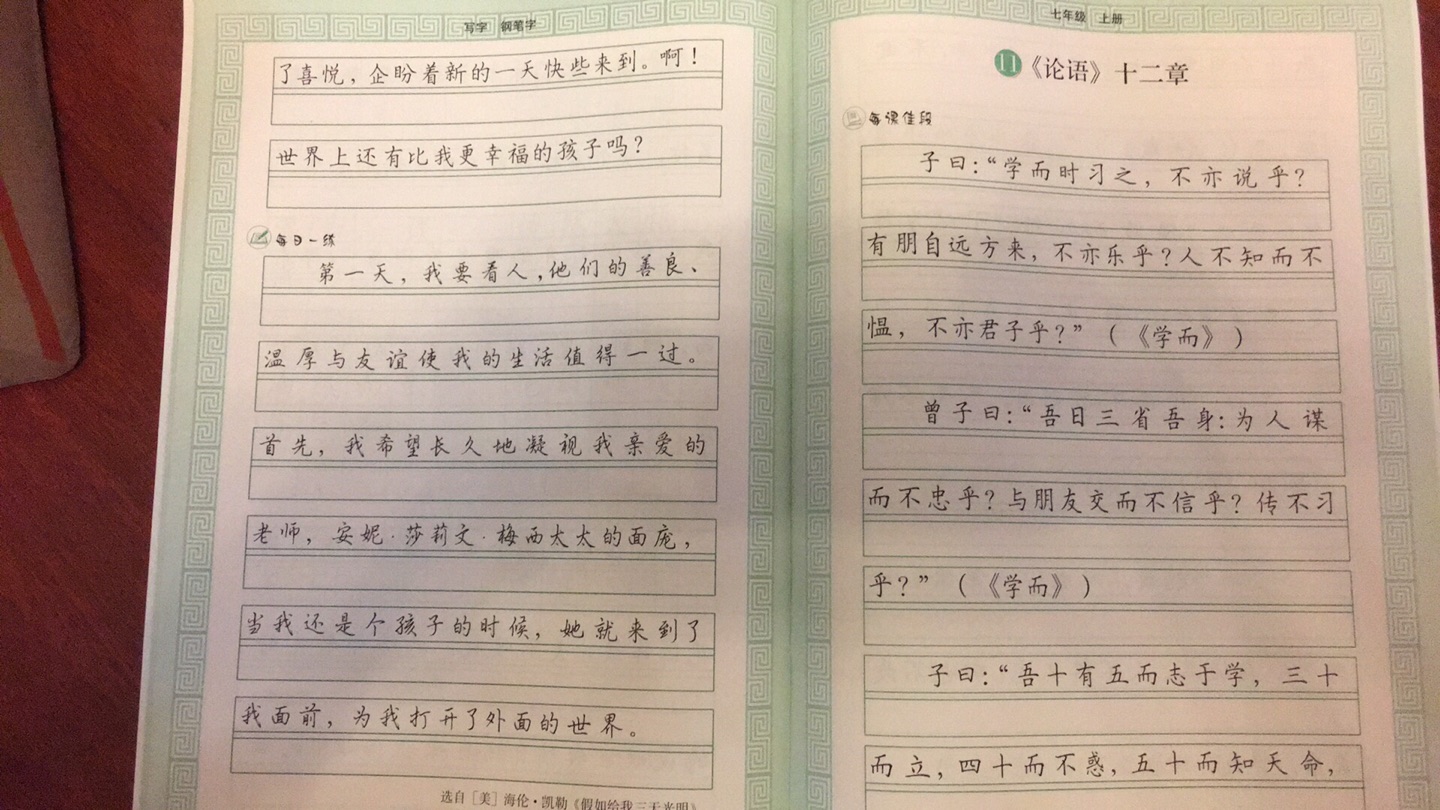 写字 钢笔字
了喜悦，企盼着新的一天快些来到。啊！
世界上还有比我更幸福的孩子吗？
每日一练
第一天，我要看人，他们的善良、
温厚与友谊使我的生活值得一过。
首先，我希望长久地凝视我亲爱的
老师，安妮·莎莉文·梅西太太的面庞，
当我还是个孩子的时候，她就来到了
我面前，为我打开了外面的世界。
选自［美］海伦·凯勒《假如给我三天光明》
七年级 上册
11《论语》十二章
每课佳段
子曰：“学而时习之，不亦说乎？
有朋自远方来，不亦乐乎？人不知而不
愠，不亦君子乎？”（《学而》）
曾子曰：“吾日三省吾身：为人谋
而不忠乎？与朋友交而不信乎？传不习
乎？”（《学而》）
子曰：“吾十有五而志于学，三十
而立，四十而不惑，五十而知天命，